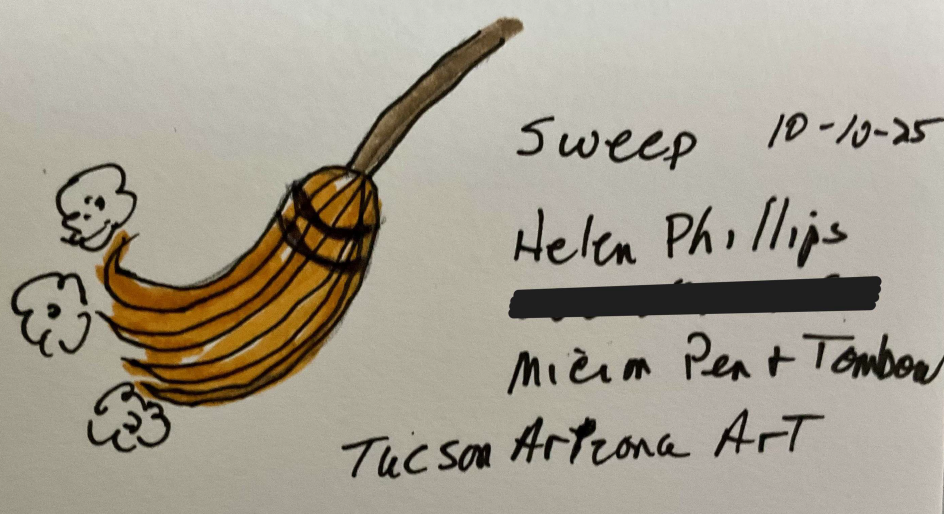 Sweep 10-10-25
Helen Phillips
Micron Pen + Tombow
Tucson Arizona Art